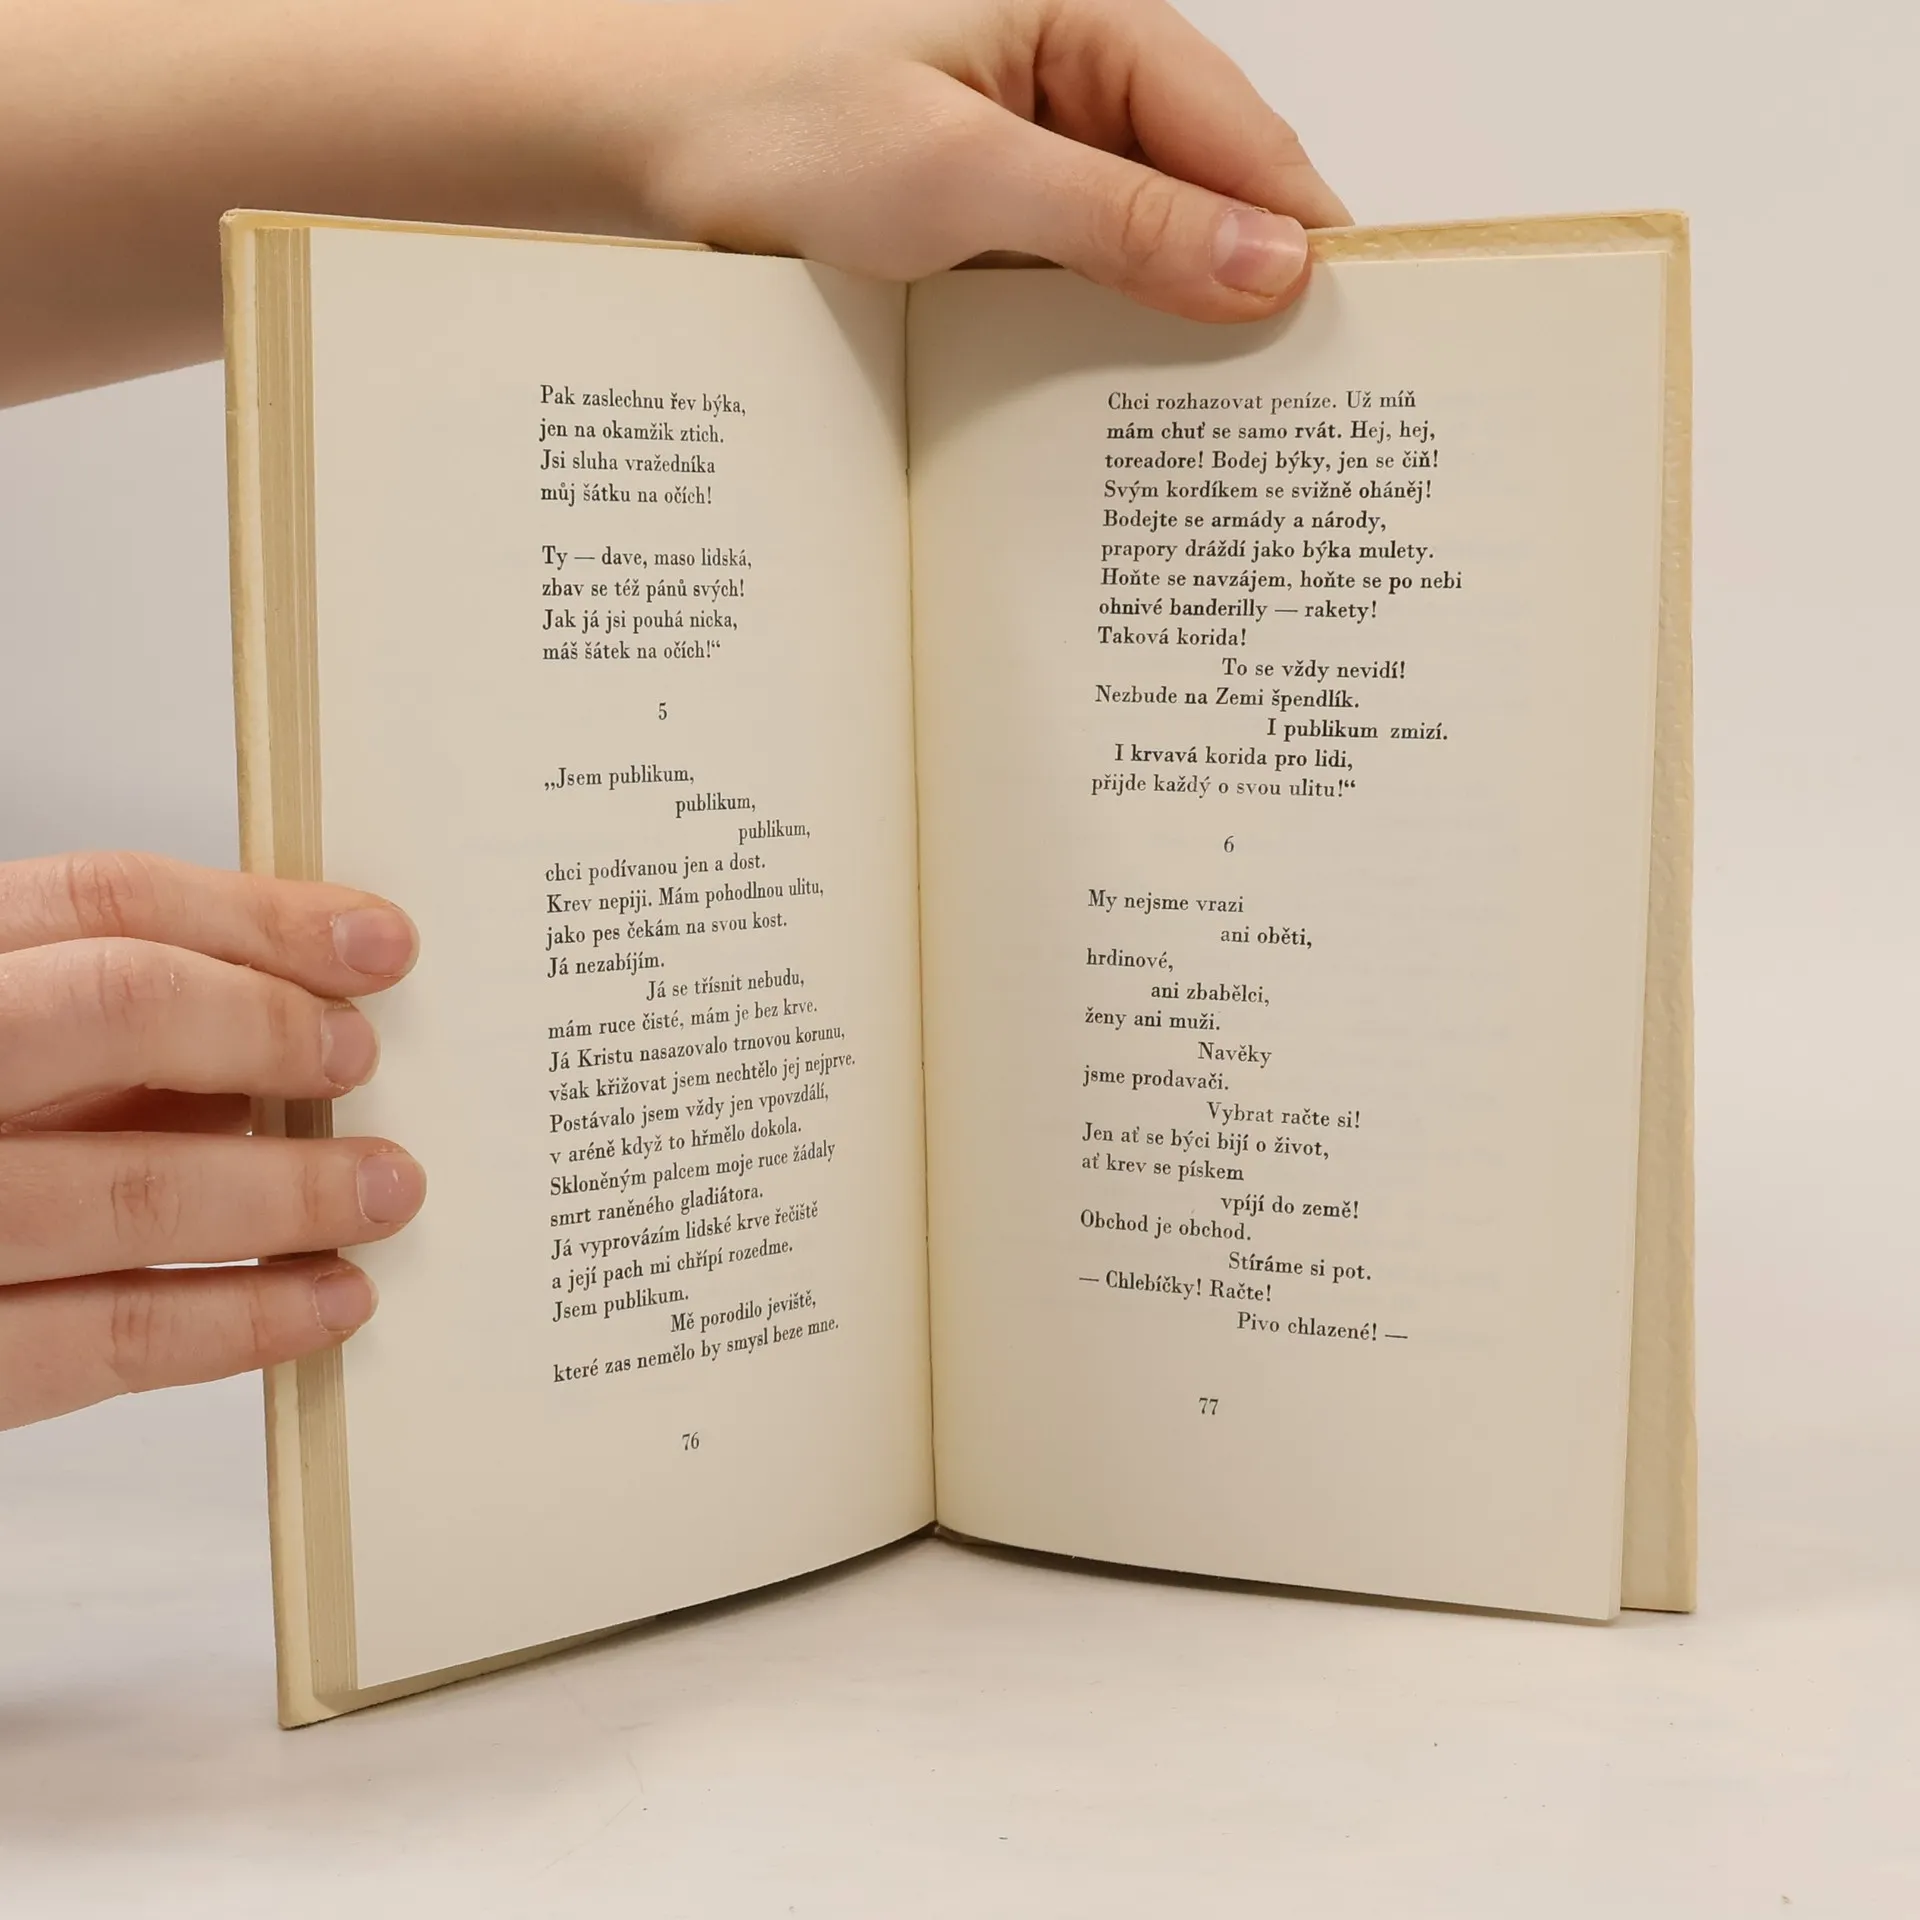 Pak zaslechnu řev býka,
jen na okamžik ztich.
Jsi sluha vražedníka
můj šátku na očích!
Ty — dave, maso lidská,
zbav se též pánů svých!
Jak já jsi pouhá nicka,
máš šátek na očích!“
5
„Jsem publikum,
publikum,
publikum,
chci podívanou jen a dost.
Krev nepiji. Mám pohodlnou ulitu,
jako pes čekám na svou kost.
Já nezabíjím.
Já se třísnit nebudu,
mám ruce čisté, mám je bez krve.
Já Kristu nasazovalo trnovou korunu,
však křižovat jsem nechtělo jej nejprve.
Postávalo jsem vždy jen vpovzdálí,
v aréně když to hřmělo dokola.
Skloněným palcem moje ruce žádaly
smrt raněného gladiátora.
Já vyprovázím lidské krve řečiště
a její pach mi chřípí rozedme.
Jsem publikum.
Mě porodilo jeviště,
které zas nemělo by smysl beze mne.
76
Chci rozhazovat peníze. Už míň
mám chuť se samo rvát. Hej, hej,
toreadore! Bodej býky, jen se čiň!
Svým kordíkem se svižně oháněj!
Bodejte se armády a národy,
prapory dráždí jako býka mulety.
Hoňte se navzájem, hoňte se po nebi
ohnivé banderilly — rakety!
Taková korida!
To se vždy nevidí!
Nezbude na Zemi špendlík.
I publikum zmizí.
I krvavá korida pro lidi,
přijde každý o svou ulitu!“
6
My nejsme vrazi
ani oběti,
hrdinové,
ani zbabělci,
ženy ani muži.
Navěky
jsme prodavači.
Vybrat račte si!
Jen ať se býci bijí o život,
ať krev se pískem
vpíjí do země!
Obchod je obchod.
Stíráme si pot.
— Chlebíčky! Račte!
Pivo chlazené! —
77